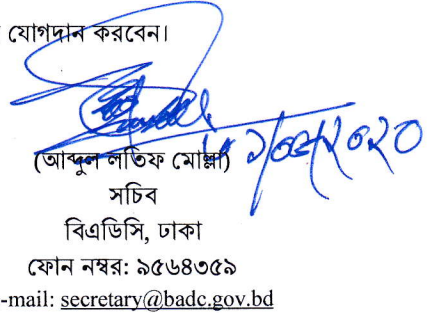 যোগদান করবেন।
(আব্দুল লতিফ মোল্লা)
সচিব
বিএডিসি, ঢাকা
ফোন নম্বর: ৯৫৬৪৩৫৯
-mail: secretary@badc.gov.bd